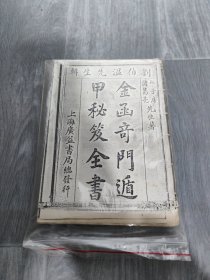 劉伯溫先生輯
諸葛亮
金函奇門遁
甲秘笈全書
上海廣益書局總發行